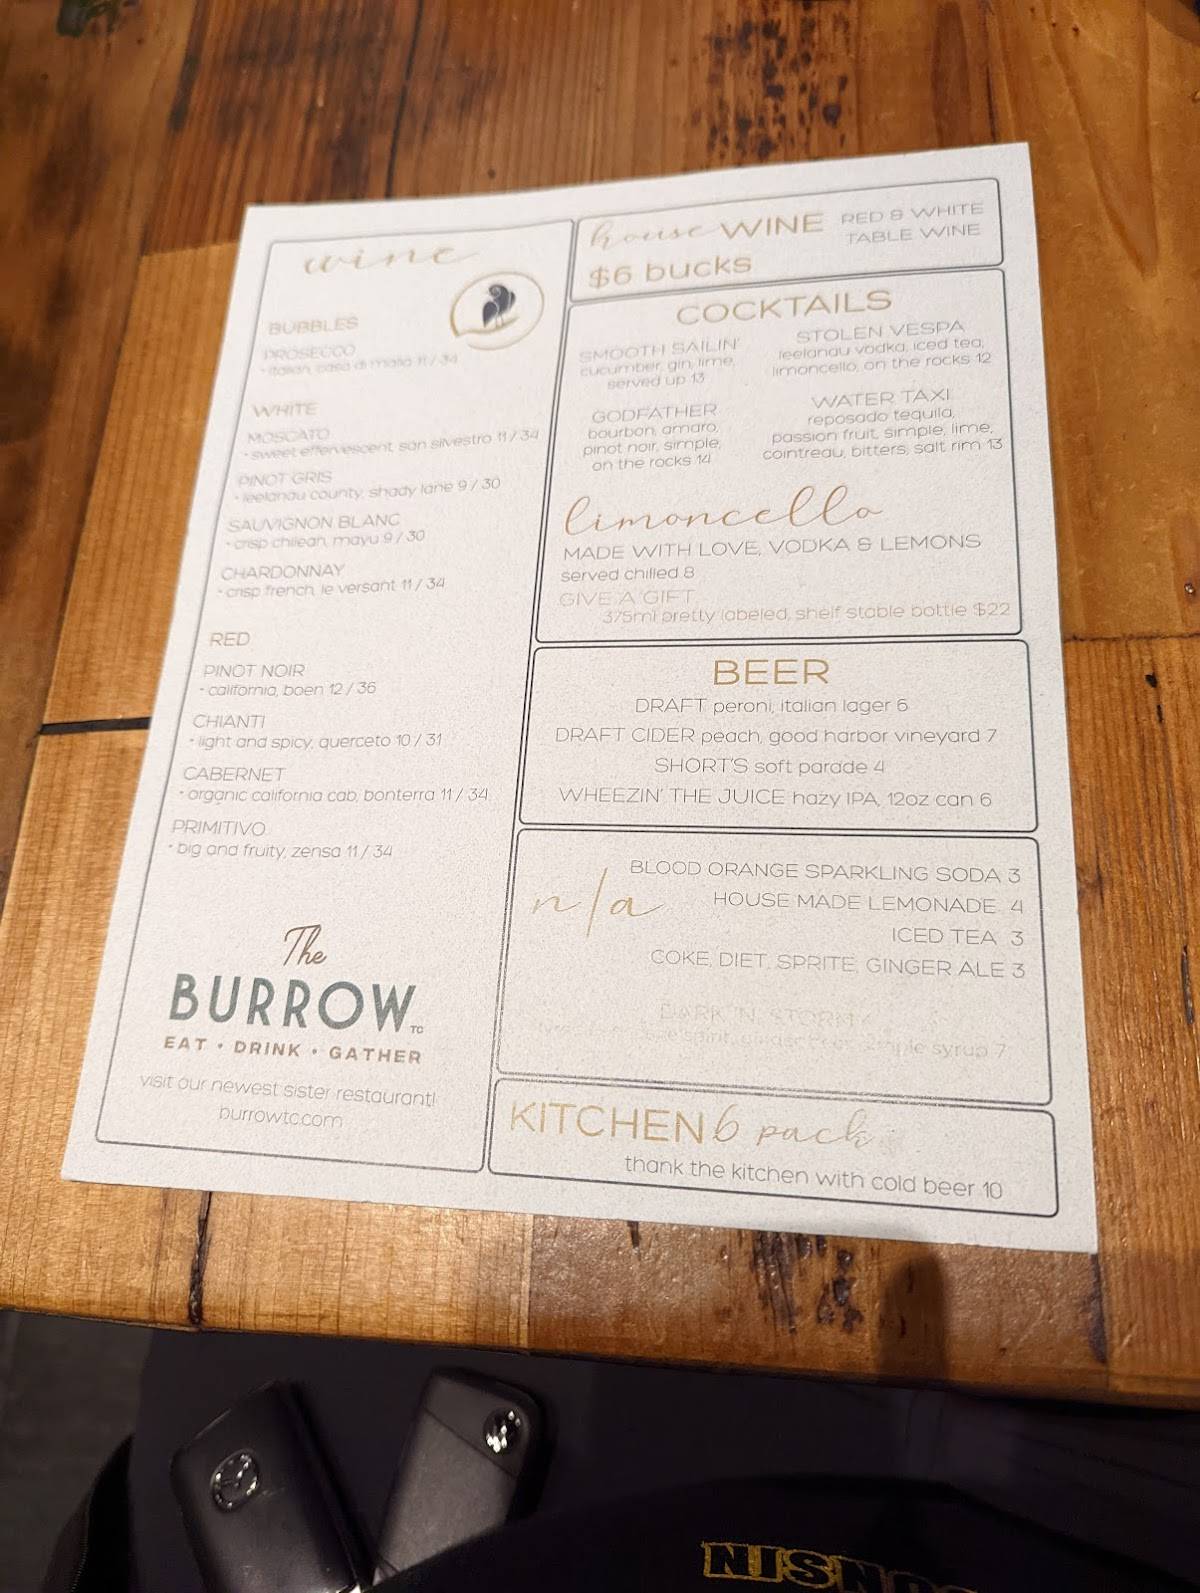 wine
BUBBLES
PROSECCO
• italian, casa di malia 11 / 34
WHITE
MOSCATO
• sweet effervescent, san silvestro 11 / 34
PINOT GRIS
• leelanau county, shady lane 9 / 30
SAUVIGNON BLANC
• crisp chilean, mayu 9 / 30
CHARDONNAY
• crisp french, le versant 11 / 34
RED
PINOT NOIR
• california, boen 12 / 36
CHIANTI
• light and spicy, querceto 10 / 31
CABERNET
• organic california cab, bonterra 11 / 34
PRIMITIVO
• big and fruity, zensa 11 / 34
The
BURROW TC
EAT • DRINK • GATHER
visit our newest sister restaurant!
burrowtc.com
house WINE RED & WHITE
TABLE WINE
$6 bucks
COCKTAILS
SMOOTH SAILIN'
cucumber, gin, lime,
served up 13
STOLEN VESPA
leelanau vodka, iced tea,
limoncello, on the rocks 12
GODFATHER
bourbon, amaro,
pinot noir, simple,
on the rocks 14
WATER TAXI
reposado tequila,
passion fruit, simple, lime,
cointreau, bitters, salt rim 13
limoncello
MADE WITH LOVE, VODKA & LEMONS
served chilled 8
GIVE A GIFT
375ml pretty labeled, shelf stable bottle $22
BEER
DRAFT peroni, italian lager 6
DRAFT CIDER peach, good harbor vineyard 7
SHORT'S soft parade 4
WHEEZIN' THE JUICE hazy IPA, 12oz can 6
n/a
BLOOD ORANGE SPARKLING SODA 3
HOUSE MADE LEMONADE 4
ICED TEA 3
COKE, DIET, SPRITE, GINGER ALE 3
DARK 'N STORMY
spirit, simple syrup 7
KITCHEN 6 pack
thank the kitchen with cold beer 10